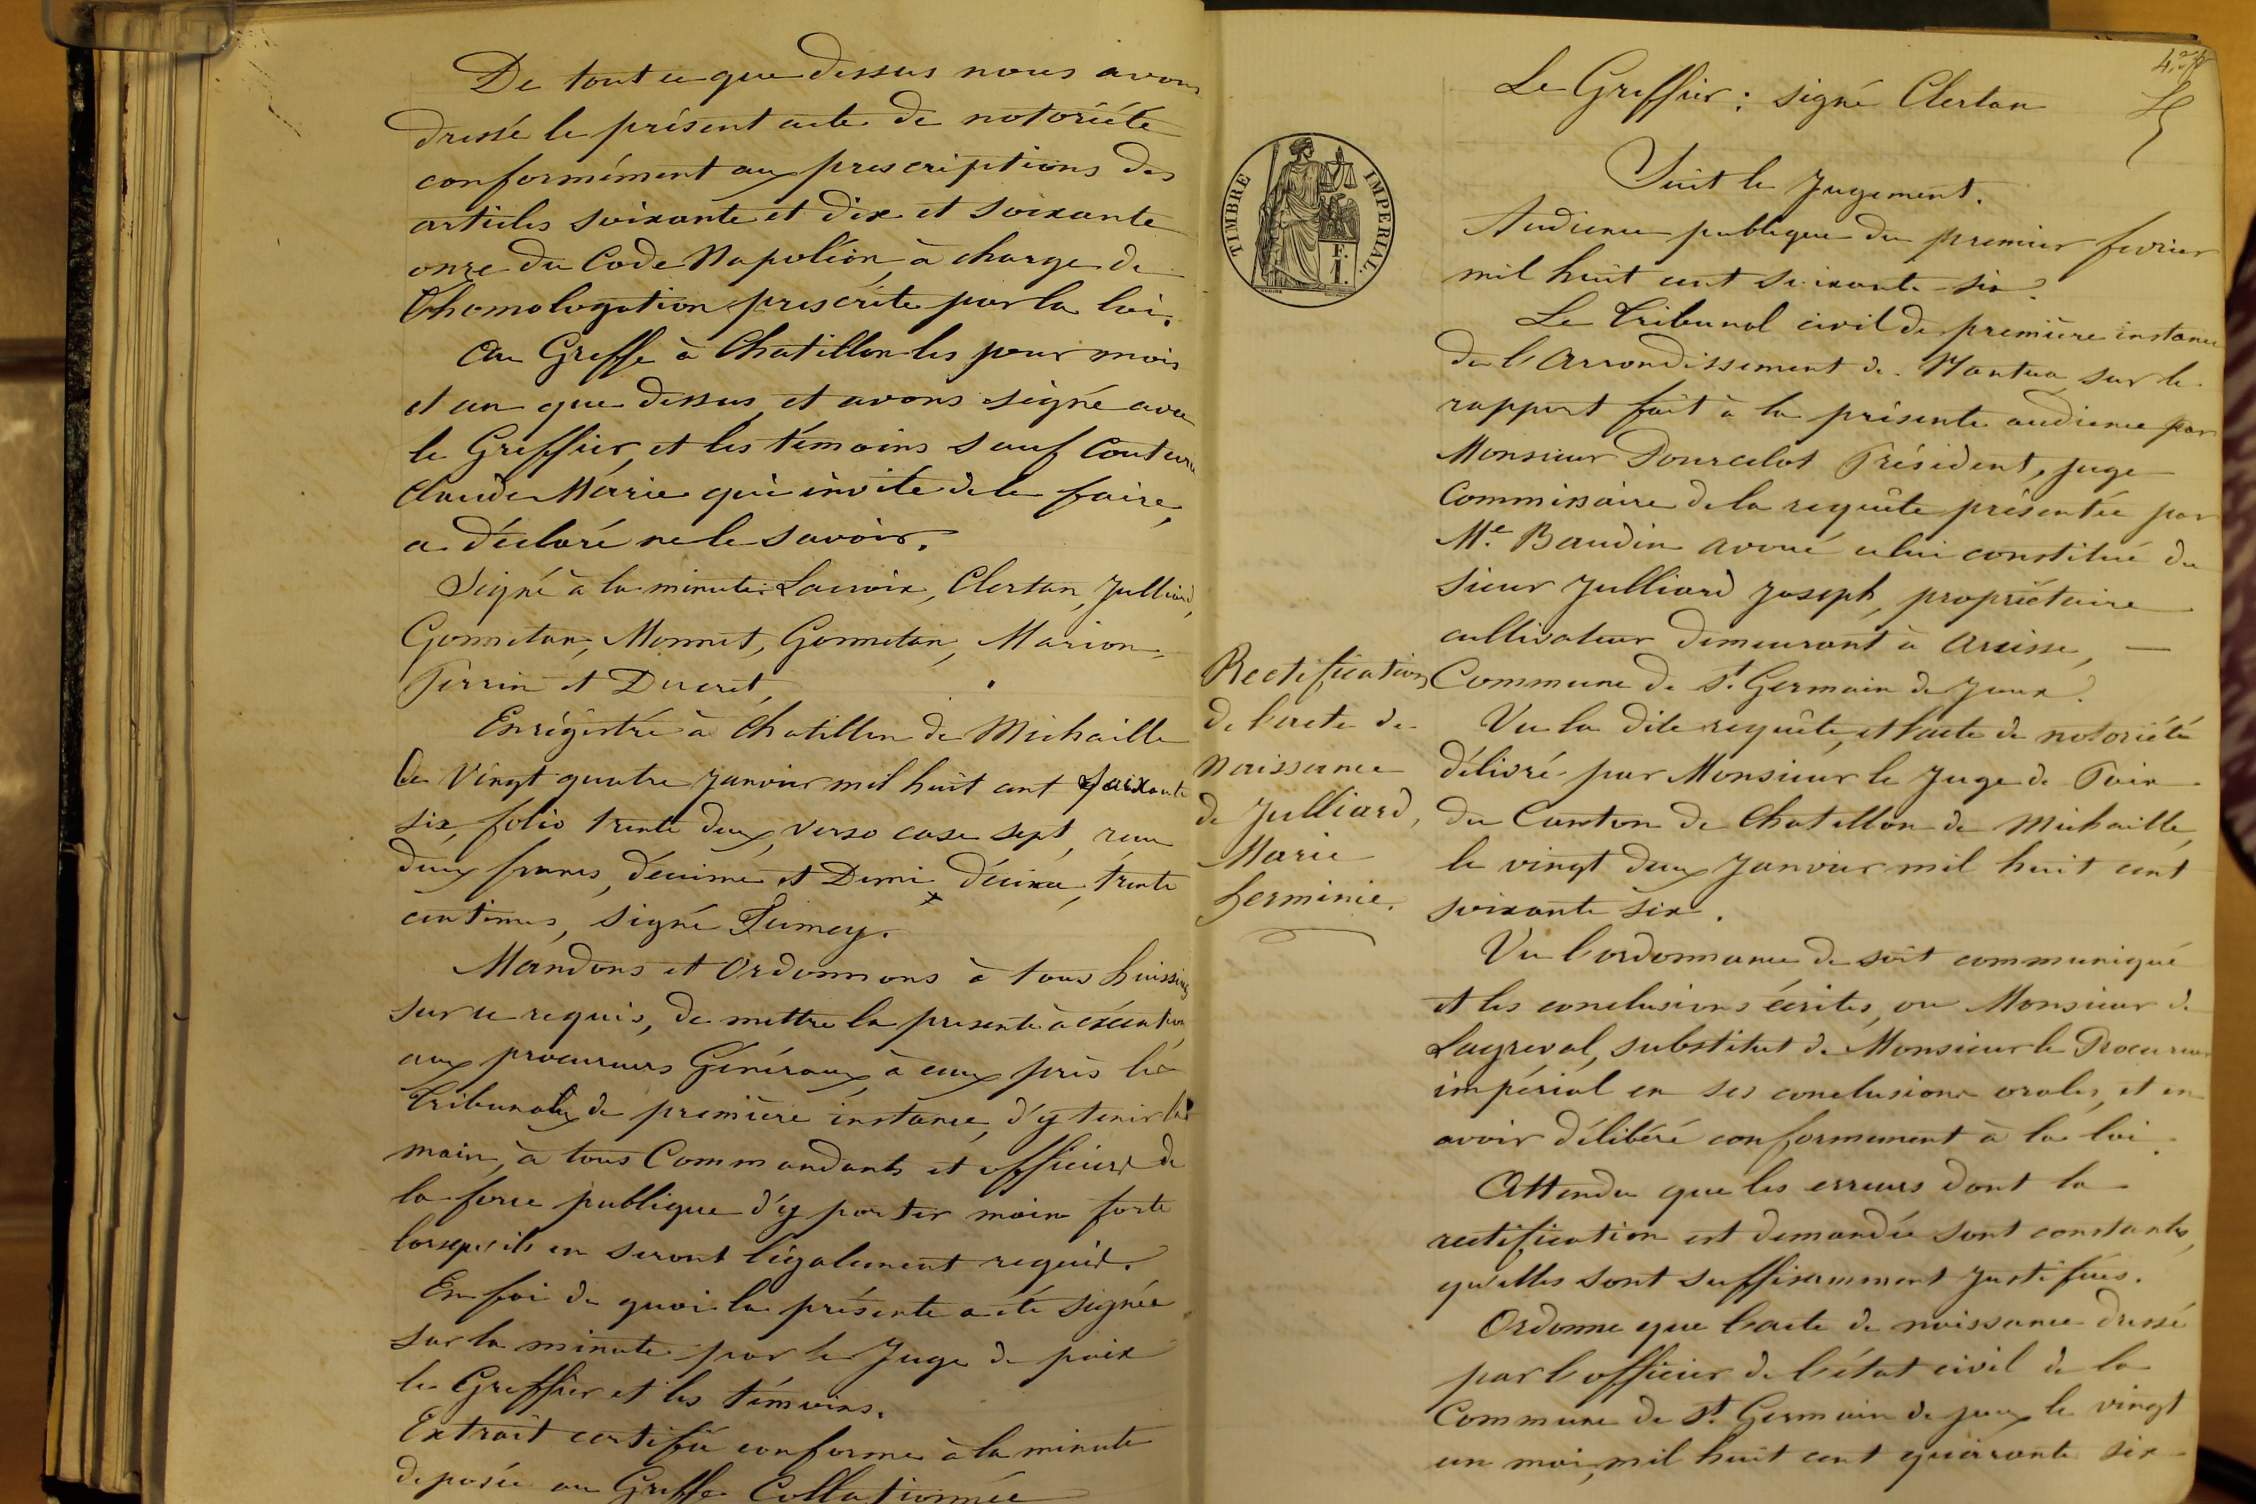 De tout ce que dessus nous avons
dressé le présent acte de notoriété
conformément aux prescriptions des
articles soixante et dix et soixante
onze du Code Napoléon, à charge de
l'homologation prescrite par la loi.
Au Greffe à Chatillon les jour mois
et an que dessus, et avons signé avec
le Greffier, et les témoins sauf Couturier
Claude Marie qui invité de le faire,
a déclaré ne le savoir.
Signé à la minute: Lacroix, Clertan, Julliard,
Gonnetan, Monnet, Gonnetan, Marion,
Perrin et Ducret.
Enrégistré à Chatillon de Michaille
le vingt quatre janvier mil huit cent soixante
six, folio trente deux, verso case sept, reçu
deux francs, décime et Demi décime, trente
centimes, signé Fumey.
Mandons et Ordonnons à tous huissiers
sur ce requis, de mettre la presente à exécution,
aux procureurs Généraux, à ceux près les
Tribunaux de première instance, d'y tenir la
main, à tous Commandants et officiers de
la force publique d'y porter main forte
lorsqu'ils en seront légalement requis.
En foi de quoi la présente a été signée
sur la minute par le Juge de paix
le Greffier et les témoins.
Extrait certifié conforme à la minute
déposée au Greffe Collationnée
Le Greffier: signé Clertan
TIMBRE IMPERIAL.
F.
1.
Suit le Jugement.
Audience publique du premier fevrier
mil huit cent soixante six.
Le Tribunal civil de première instance
de l'Arrondissement de Nantua, sur le
rapport fait à la présente audience par
Monsieur Dourcelot Président, juge
Commissaire de la requête présentée par
Me. Baudin avoué celui constitué du
sieur Julliard Joseph, propriétaire
cultivateur demeurant à Arcisse, —
Commune de St. Germain de Joux.
Rectification
de l'acte de
Naissance
de Julliard,
Marie
herminie.
Vu la dite requête, et l'acte de notoriété
délivré par Monsieur le Juge de Paix
du Canton de Chatillon de Michaille,
le vingt deux janvier mil huit cent
soixante six.
Vu l'ordonnance de soit communiqué
et les conclusions écrites, ou Monsieur de
Lagreval, substitut de Monsieur le Procureur
impérial en ses conclusions orales, et en
avoir délibéré conformement à la loi.
Attendu que les erreurs dont la
rectification est demandée sont constantes,
qu'elles sont suffisamment justifiées.
Ordonne que l'acte de naissance dressé
par l'officier de l'état civil de la
Commune de St. Germain de joux le vingt
un mai mil huit cent quarante six